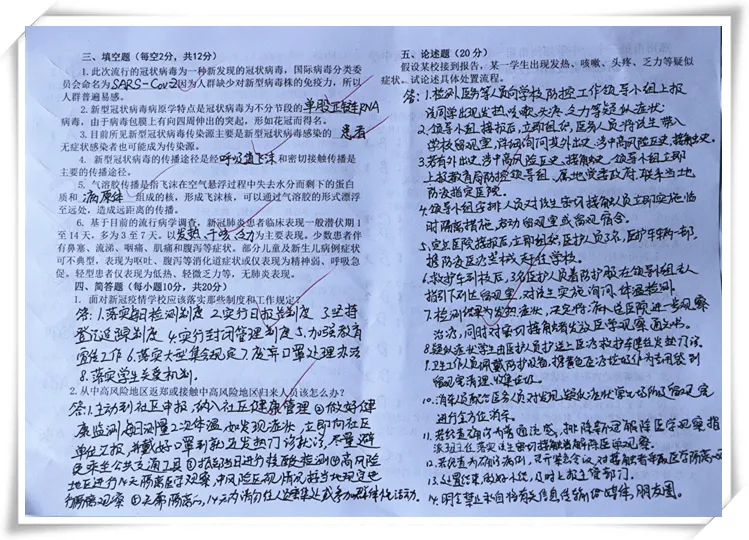 三、填空题（每空2分，共12分）
1. 此次流行的冠状病毒为一种新发现的冠状病毒，国际病毒分类委
员会命名为SARS-Cov2因为人群缺少对新型病毒株的免疫力，所以
人群普遍易感。
2. 新型冠状病毒病原学特点是冠状病毒为不分节段的单股正链RNA
病毒，由于病毒包膜上有向四周伸出的突起，形如花冠而得名。
3. 目前所见新型冠状病毒传染源主要是新型冠状病毒感染的患者
无症状感染者也可能成为传染源。
4. 新型冠状病毒的传播途径是经呼吸道飞沫和密切接触传播是
主要的传播途径。
5. 气溶胶传播是指飞沫在空气悬浮过程中失去水分而剩下的蛋白
质和病原体组成的核，形成飞沫核，可以通过气溶胶的形式漂浮
至远处，造成远距离的传播。
6. 基于目前的流行病学调查，新冠肺炎患者临床表现一般潜伏期1
至14天，多为3至7天，以发热、干咳、乏力为主要表现。少数患者伴
有鼻塞、流涕、咽痛、肌痛和腹泻等症状。部分儿童及新生儿病例症状
可不典型，表现为呕吐、腹泻等消化道症状或仅表现为精神弱、呼吸急
促。轻型患者仅表现为低热、轻微乏力等，无肺炎表现。
四、简答题（每小题10分，共20分）
1. 面对新冠疫情学校应该落实那些制度和工作规定？
答：1.落实每日检测制度 2.实行日报告制度 3.坚持
登记追踪制度 4.实行封闭管理制度 5.加强教育
宣传工作 6.落实大型集会规定 7.废弃口罩处理办法
8.落实学生关爱机制。
2. 从中高风险地区返郑或接触中高风险地区归来人员该怎么办？
答：1.主动到社区申报，纳入社区健康管理 ②做好健
康监测，每日测量2次体温，如发现症状，立即向社区
单位汇报，并戴好口罩到就近发热门诊就诊，尽量避
免乘坐公共交通工具 ③抵郑当日进行核酸检测 ④高风险
地区进行14天隔离医学观察，中风险区视情况按当地规定进
行隔离观察 ⑤14天内请勿在人群密集处或参加群体性活动。
五、论述题（20分）
假设某校接到报告，某一学生出现发热、咳嗽、头疼、乏力等疑似
症状。试论述具体处置流程。
答：1.检测医务等人员向学校防控工作领导小组上报
该同学出现发热、咳嗽、头疼、乏力等疑似症状。
2.领导小组接报后，立即组织，医务人员将该生带入
学校留观室，详细询问其外出史，涉中高风险区史，接触史。
3.若有外出史，涉中高风险历史，接触史，领导小组立即
上报教育局防控领导组、属地党委政府，联系当地
防疫指定医院。
4.领导小组安排人员对该生密切接触人员立即实施临
时隔离措施，启动留观室或留观宿舍。
5.定点医院接报后，立即组织医护人员3名，医护车辆一部，
携防疫医疗器械赶往学校。
6.救护车到校后，3名医护人员着防护服在领导小组专人
指引下到达留观室，对该生实施询问、体温检测。
7.检测结果为发热症状，决定将病人送医院进一步观察
治疗，同时对密切接触者发放医学观察通知书。
8.疑似症状学生由医护人员护送上医疗救护车赴发热门诊。
9.卫生人员佩戴防护设备，持黄色医疗垃圾外包专用袋到
留观室清理、收集垃圾。
10.消杀员配合医务人员对发现疑似症状学生场所及留观室
进行全方位消杀。
11.若检查确诊为普通流感，排除新冠解除医学观察，指
派班主任落实该生密切接触者解除医学观察。
12.若检查为确诊病例，召开紧急会议，对接触者采取医学隔离
13.处置结果做好小结，及时上报主管部门。
14.明令禁止私自将有关信息传输给媒体、朋友圈。